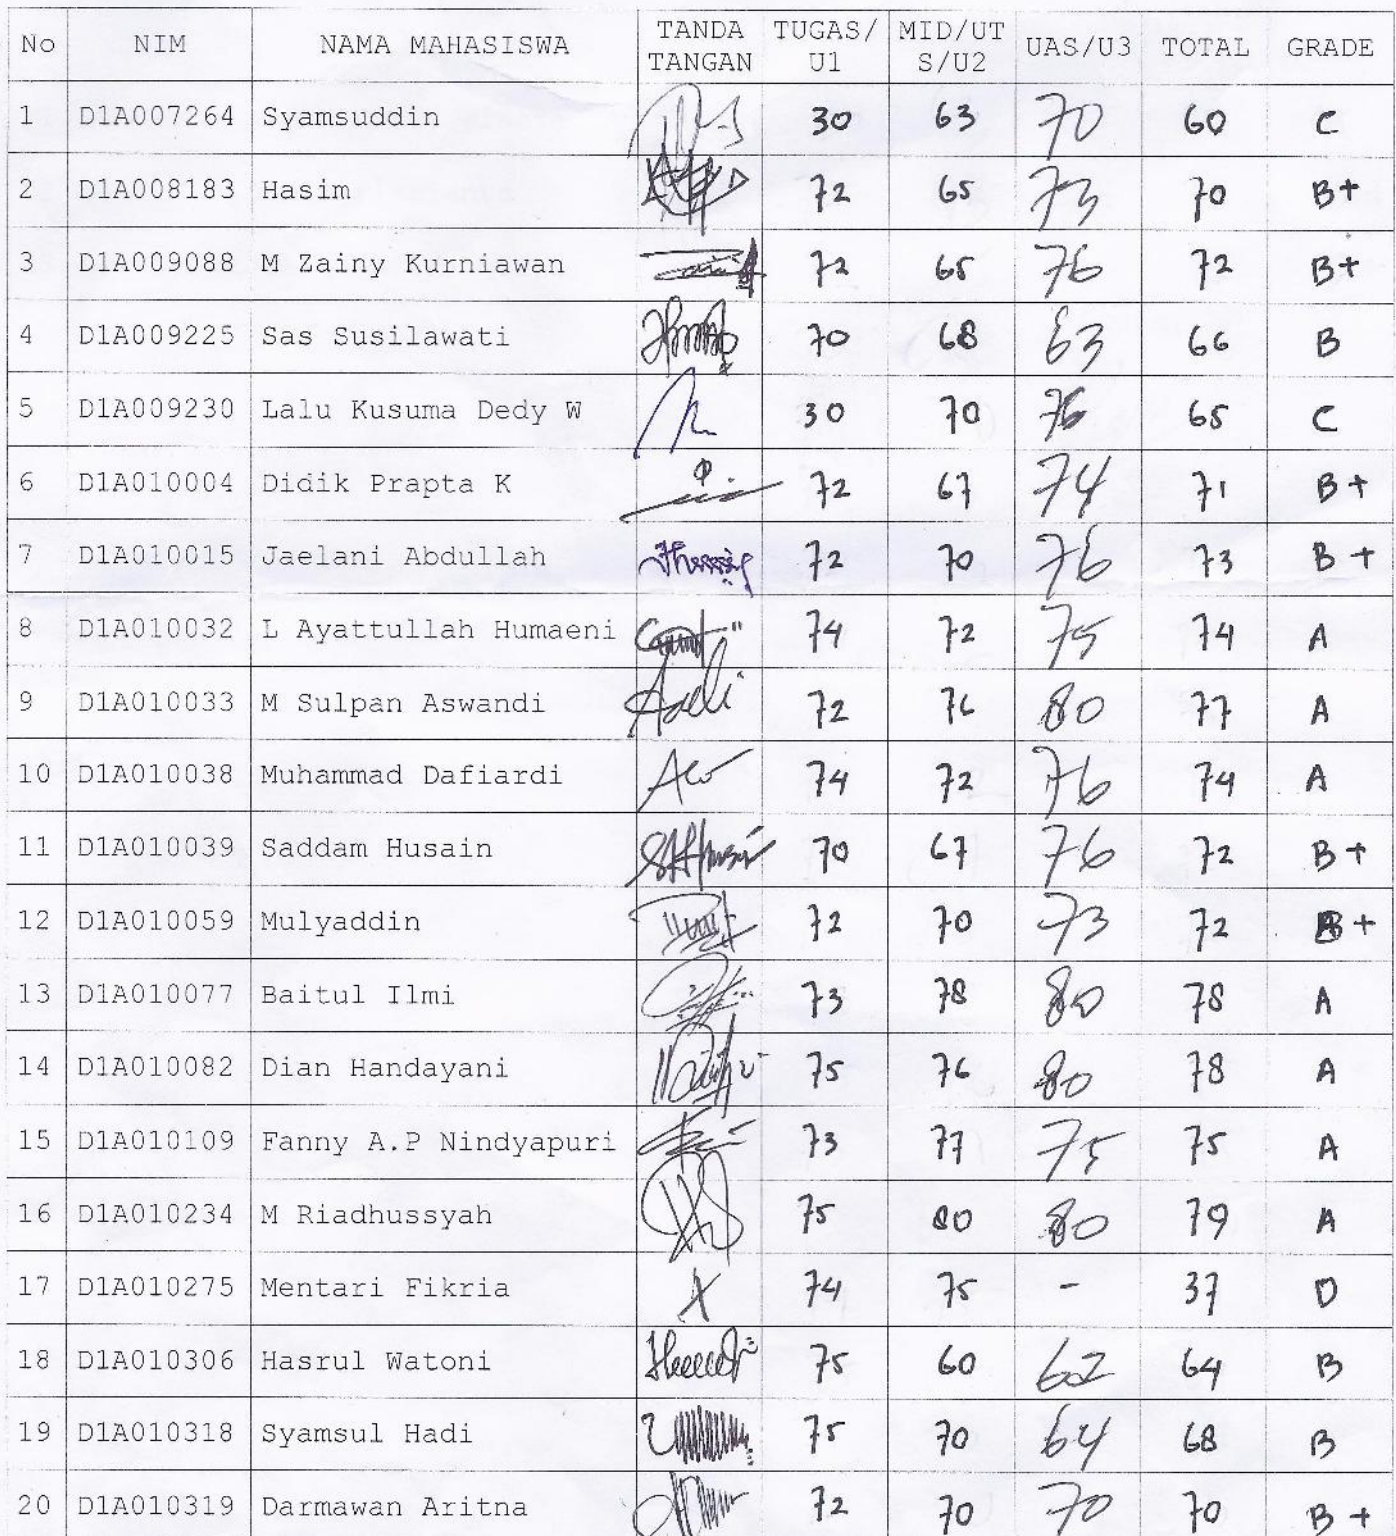 No NIM NAMA MAHASISWA TANDA TANGAN TUGAS/U1 MID/UTS/U2 UAS/U3 TOTAL GRADE
1 D1A007264 Syamsuddin 30 63 70 60 C
2 D1A008183 Hasim 72 65 73 70 B+
3 D1A009088 M Zainy Kurniawan 72 65 76 72 B+
4 D1A009225 Sas Susilawati 70 68 63 66 B
5 D1A009230 Lalu Kusuma Dedy W 30 70 76 65 C
6 D1A010004 Didik Prapta K 72 67 74 71 B+
7 D1A010015 Jaelani Abdullah 72 70 76 73 B+
8 D1A010032 L Ayattullah Humaeni 74 72 75 74 A
9 D1A010033 M Sulpan Aswandi 72 76 80 77 A
10 D1A010038 Muhammad Dafiardi 74 72 76 74 A
11 D1A010039 Saddam Husain 70 67 76 72 B+
12 D1A010059 Mulyaddin 72 70 73 72 B+
13 D1A010077 Baitul Ilmi 73 78 80 78 A
14 D1A010082 Dian Handayani 75 76 80 78 A
15 D1A010109 Fanny A.P Nindyapuri 73 77 75 75 A
16 D1A010234 M Riadhussyah 75 80 80 79 A
17 D1A010275 Mentari Fikria X 74 75 - 37 D
18 D1A010306 Hasrul Watoni 75 60 62 64 B
19 D1A010318 Syamsul Hadi 75 70 64 68 B
20 D1A010319 Darmawan Aritna 72 70 70 70 B+